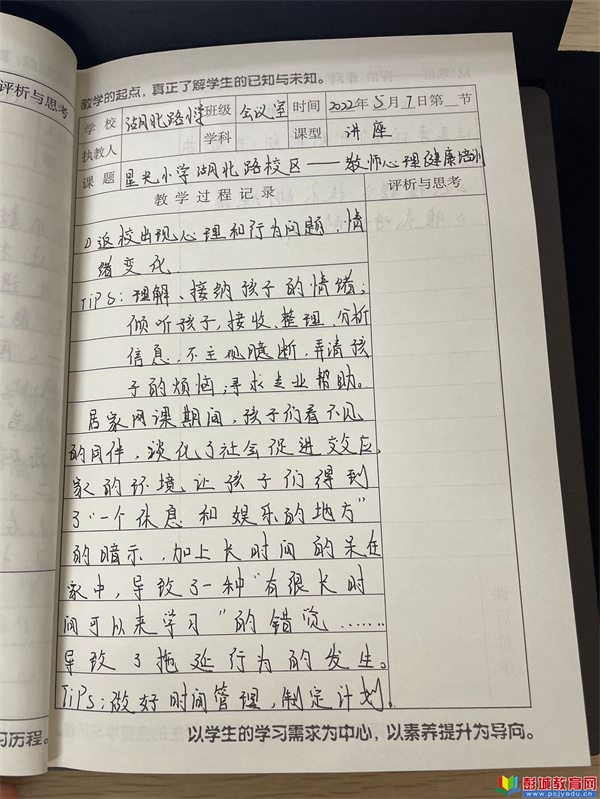 评析与思考
教学的起点，真正了解学生的已知与未知。
学 校 湖北路小学 班级 会议室 时间 2022年5月7日第 节
执教人 学科 课型 讲座
课 题 星光小学湖北路校区——教师心理健康培训
教 学 过 程 记 录 评析与思考
① 返校出现心理和行为问题，情
绪变化
TiPS：理解、接纳孩子的情绪；
倾听孩子，接收、整理、分析
信息，不主观臆断，弄清孩
子的烦恼；寻求专业帮助。
居家网课期间，孩子们看不见
的同伴，淡化了社会促进效应，
家的环境让孩子们得到
了“一个休息和娱乐的地方”
的暗示，加上长时间的呆在
家中，导致了一种“有很长时
间可以来学习”的错觉……
导致了拖延行为的发生。
TiPS：做好时间管理，制定计划。
习历程。
以学生的学习需求为中心，以素养提升为导向。
彭城教育网
www.pcjyedu.cn